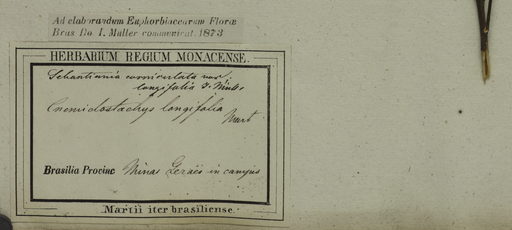 Ad elaborandum Euphorbiacearum Floræ
Bras Do. I. Muller communicat. 1873
HERBARIUM REGIUM MONACENSE.
Sebastiania corniculata var.
longifolia
Cnemidostachys longifolia
Mart
Brasilia Provinc Minas Geraës in campis
Martii iter brasiliense.